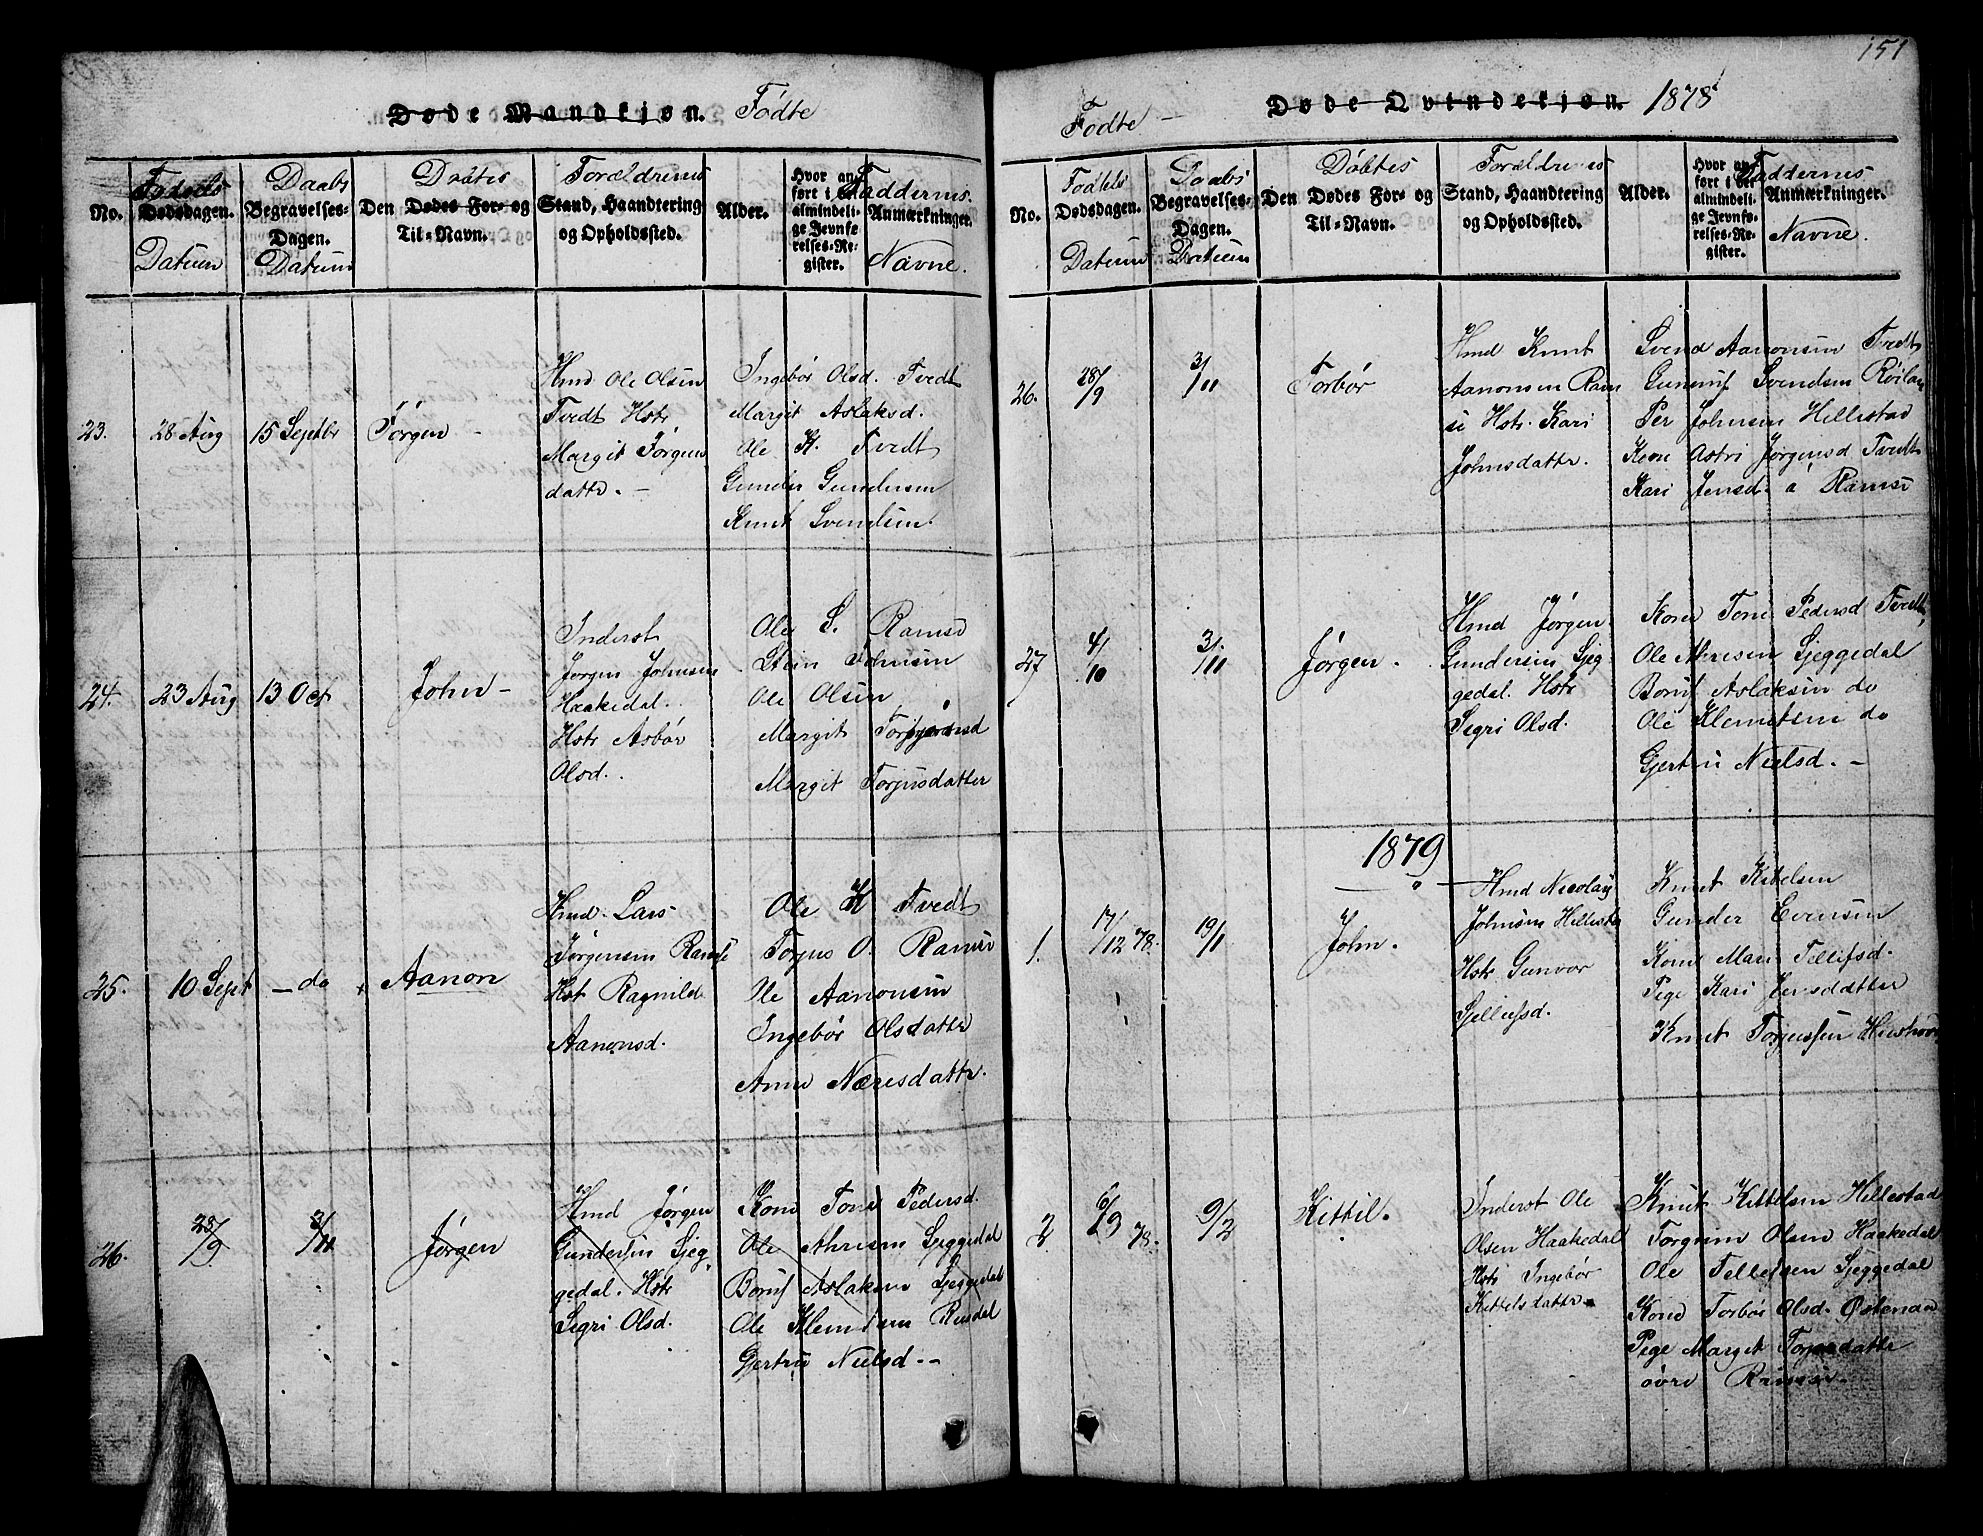 Døde Mandkjøn. Fødte
No.
Fødsels
Dødsdagen.
Datum
Daabs
Begravelses-
Dagen.
Datum
Døbtes
Den Dødes For- og
Til-Navn.
Forældrenes
Stand, Haandtering
og Opholdssted.
Alder.
Hvor an-
ført i det
almindeli-
ge Jevnfø-
relses-Re-
gister.
Faddernes
Anmærkninger.
Navne.
23.
28 Aug
15 Septbr
Jørgen -
Hmd Ole Olsen
Tvedt Hstr
Margit Jørgens
dattr. -
Ingebør Olsd. Tvedt
Margit Aslaksd.
Ole K. Tvedt
Gunder Gundersen
Knut Svendsen.
24.
23 Aug
13 Oct
John -
Inderst
Jørgen Johnsen
Haakedal.
Hstr Asbør
Olsd.
Ole S. Ramse
Stein Johnsen
Ole Olsen
Margit
Margit Torjusdatter
25.
10 Sept
- do
Aanon
Hmd. Lars
Jørgensen Ramse
Hst Ragnilde
Aanonsd.
Ole K Tvedt
Torjus O. Ramse
Ole Aanonsen
Ingebør Olsdattr
Anne Næresdattr.
26.
28/9
3/11
Jørgen
Hmd Jørgen
Gundersen Sjeg
gedal. Hstr
Segri Olsd.
Kone Tone Pedersd.
Ole Ahresen Sjeggedal
Boruf Aslaksen Sjeggedal
Ole Klemetsen Risdal
Gjertru Nielsd. -
151
Fødte - Døde Qvindekjøn. 1878
No.
Fødsels
Dødsdagen.
Datum
Daabs
Begravelses-
Dagen.
Datum
Døbtes
Den Dødes For- og
Til-Navn.
Forældrenes
Stand, Haandtering
og Opholdssted.
Alder.
Hvor an-
ført i det
almindeli-
ge Jevnfø-
relses-Re-
gister.
Faddernes
Anmærkninger.
Navne.
26.
28/9
3/11
Torbør
Hmd Knut
Aanonsen Ram
se Hstr. Kari
Johnsdattr.
Svend Aanonsen Tvedt
Gunruf Svendsen Røilan
Per Johnsen Hillestad
Kone Astri Jørgensd Tvedt
Kari Jensd. a Ramse
27
4/10
3/11
Jørgen.
Hmd Jørgen
Gundersen Sjeg
gedal. Hstr
Segri Olsd.
Kone Tone Pedersd Tvedt,
Ole Ahresen Sjeggedal
Boruf Aslaksen do
Ole Klemetsen do
Gjertru Nielsd. -
1879
1.
17/12 78.
19/1
John.
Hmd Nicolay
Johnsen Hillesta
Hstr Gunvor
Sjellefsd.
Knut Kitelsen
Gunder Evensen
Kone Mari Tellefsd.
Pige Kari Jensdatter
Knut Torjussen
2.
6/9 78.
9/2
Kittil.
Inderst Ole
Olsen Haakedal
Hstr Ingebør
Kittelsdattr.
Knut Kittelsen Hillestad
Torgrim Olsen Haakedal
Ole Tellefsen Sjeggedal
Kone Torbør Olsd.
Pige Margit Torjusdatte
øvre Ramse.